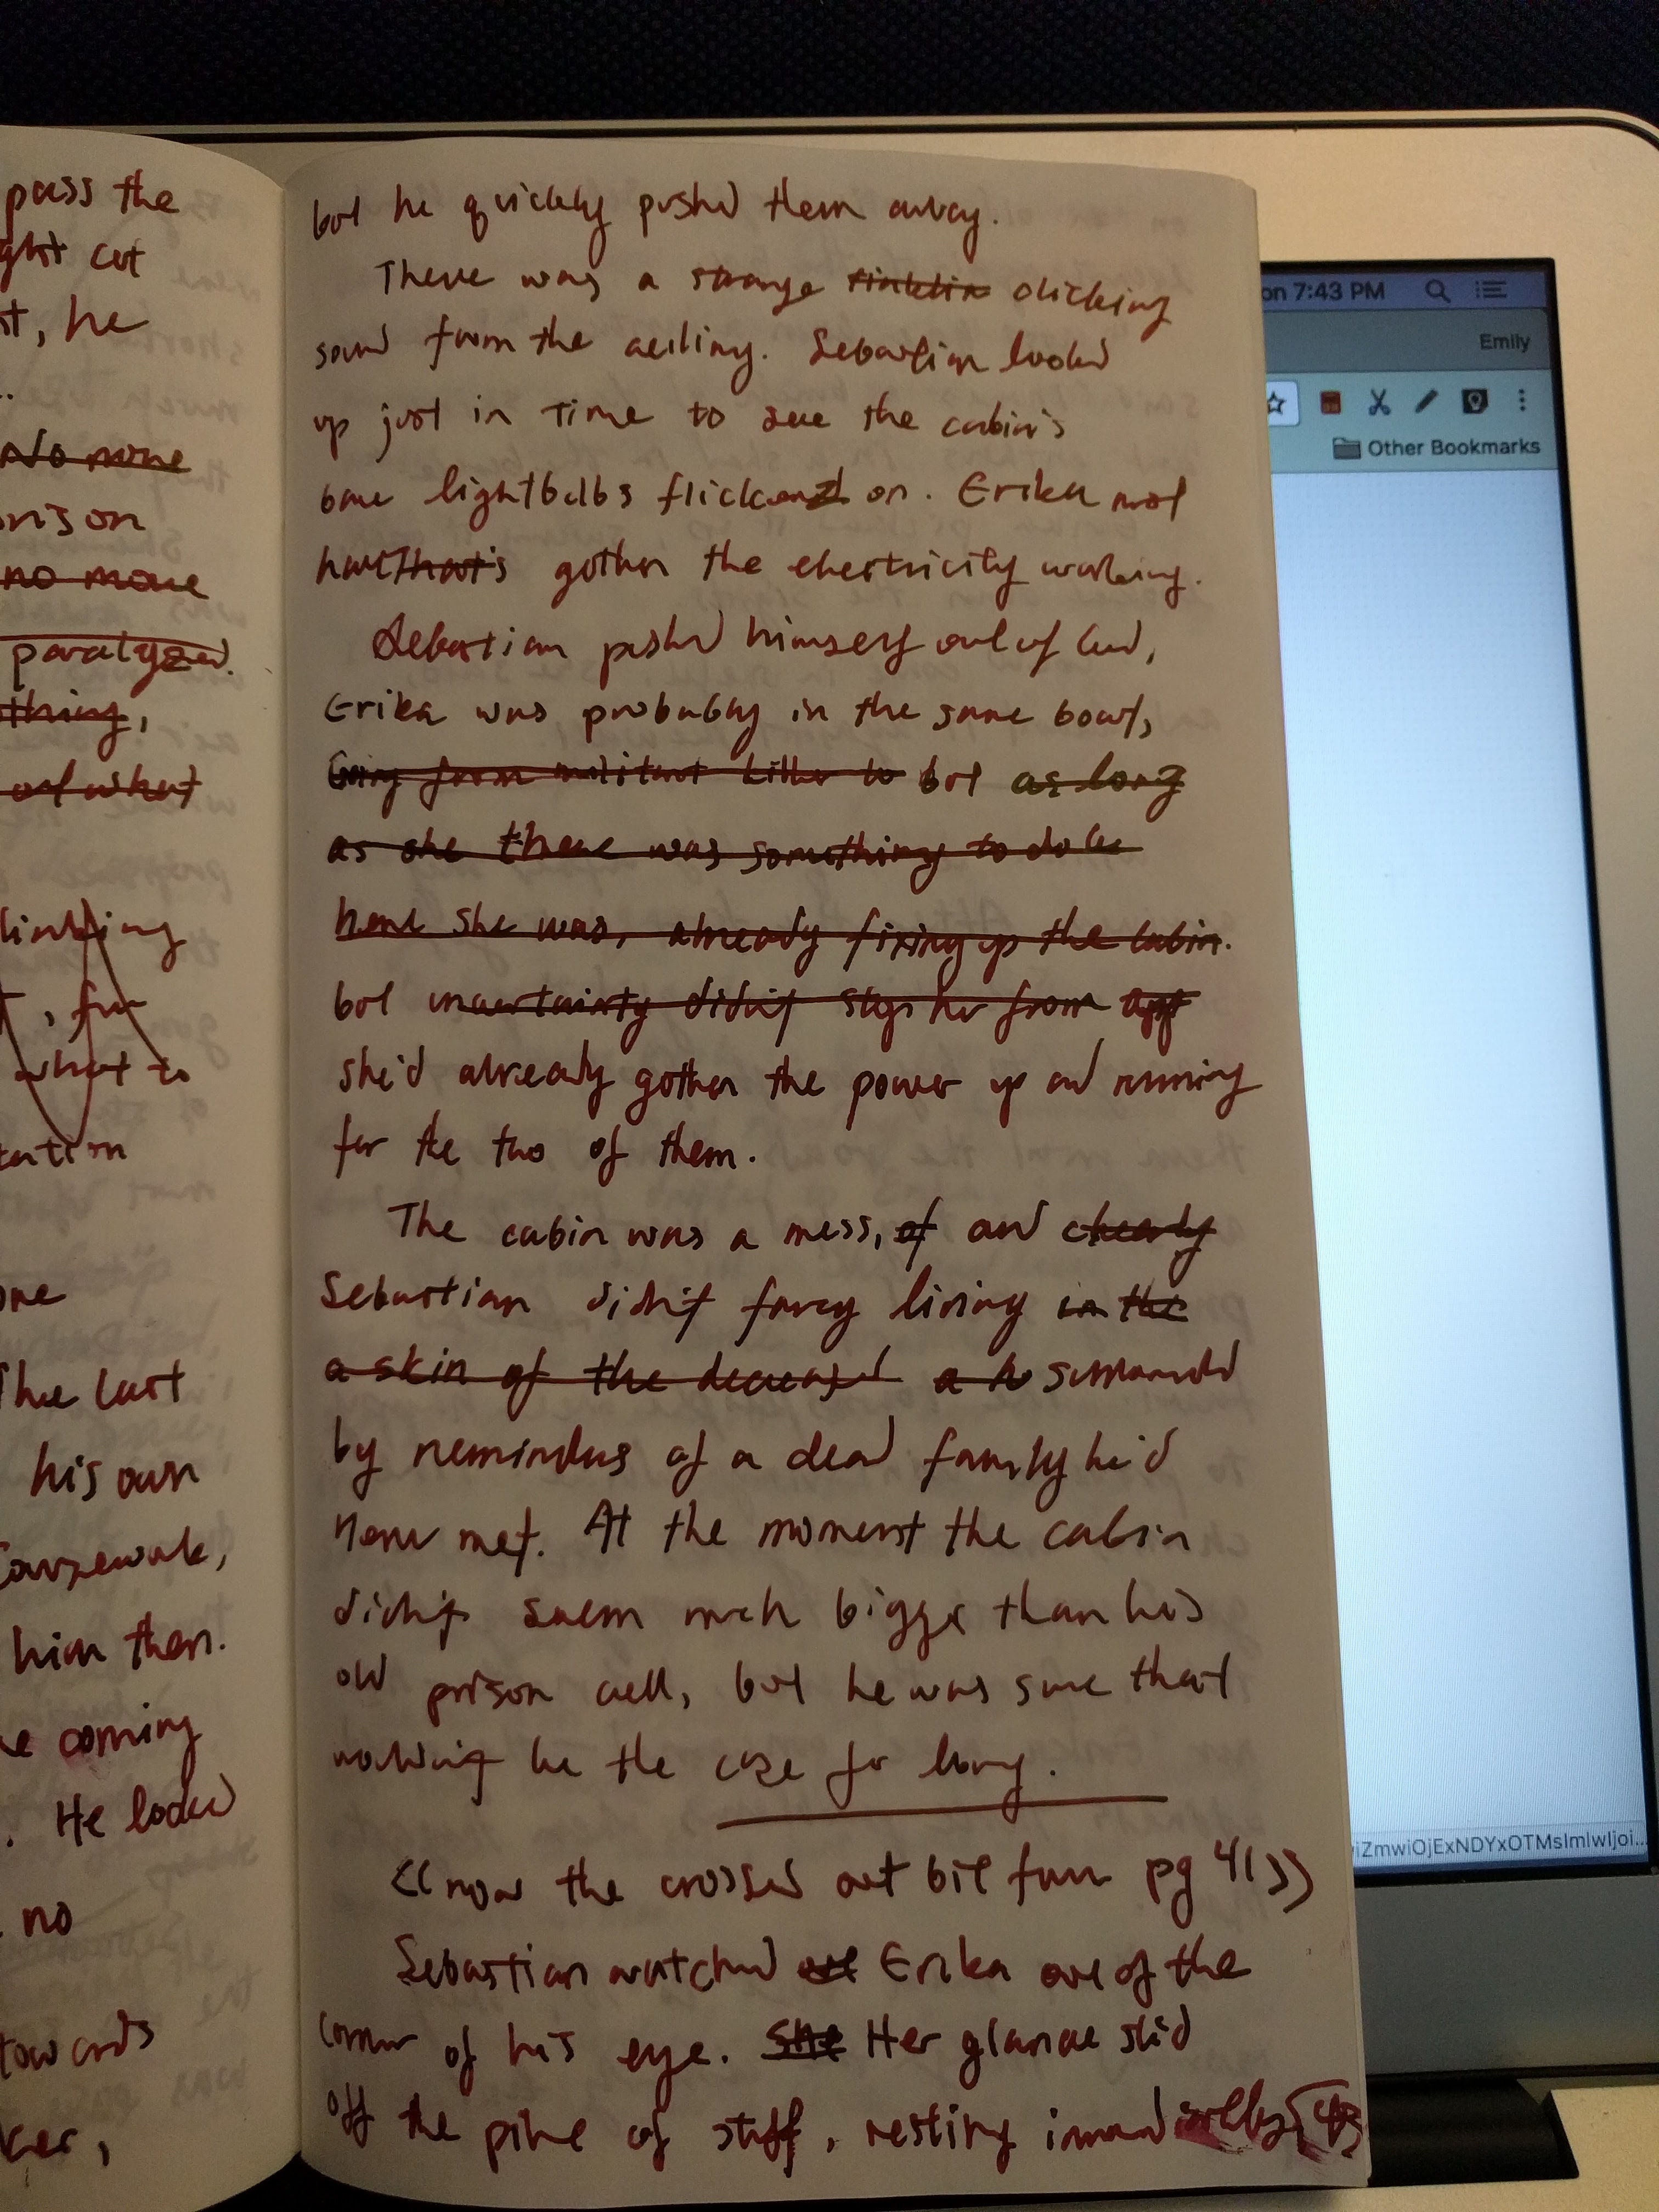 pass the
ght cut
st, he
No more
rison
no more
paralyzed.
thing,
out what
for
what to
tation
one
The last
his own
him then.
e coming
. He looked
. no
towards
ker,
but he quickly pushed them away.
There was a strange clicking
sound from the ceiling. Sebastian looked
up just in time to see the cabin's
bare lightbulbs flick on. Erika must
have gotten the electricity working.
Sebastian pushed himself out of bed,
Erika was probably in the same boat,
Going from militant killer to but as long
as she there was something to do be
here she was, already fixing up the cabin.
but uncertainty didn't stop her from
she'd already gotten the power up and running
for the two of them.
The cabin was a mess, of and clearly
Sebastian didn't fancy living in the
a skin of the deceased a h surrounded
by reminders of a dead family he'd
never met. At the moment the cabin
didn't seem much bigger than his
old prison cell, but he was sure that
wouldn't be the case for long.
<<now the crossed out bit from pg 41>>
Sebastian watched out Erika out of the
corner of his eye. She Her glance slid
off the pile of stuff, resting immediately
on 7:43 PM
Emily
Other Bookmarks
iZmwiOjExNDYxOTMsImlwIjoi...